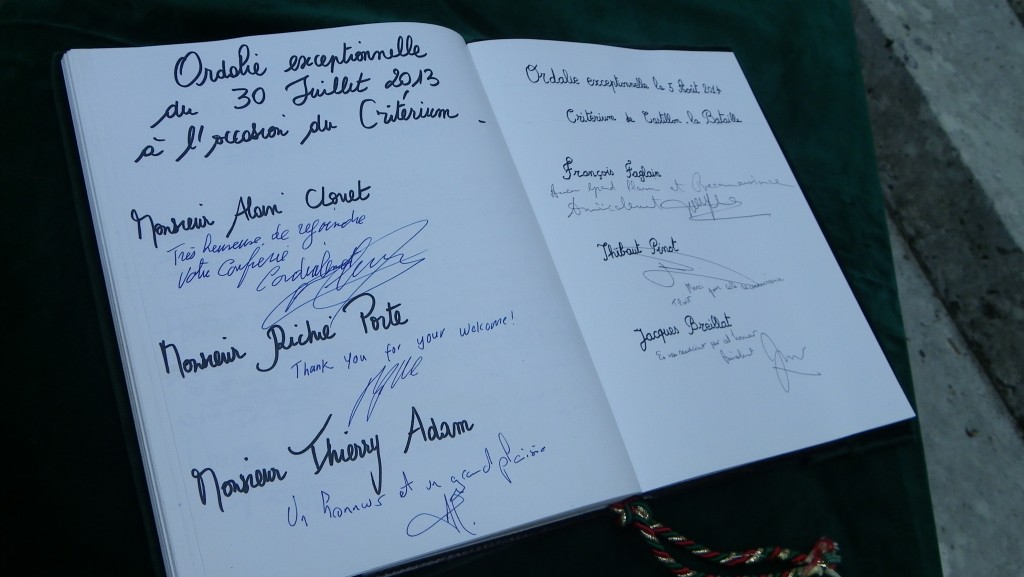 Ordalie exceptionnelle
du 30 Juillet 2013
à l'occasion du Critérium.
Monsieur Alain Clouet
Très heureuse de rejoindre
Votre Confrérie
Cordialement
Monsieur Richie Porte
Thank you for your welcome!
Monsieur Thierry Adam
Un honneur et un grand plaisir
Ordalie exceptionnelle le 5 Août 2014
Critérium de Castillon la Bataille
François Faglain
et Reconnaissance
Amicalement
Thibaut Pinot
Merci pour cette
Jacques Breillat
En vous remerciant pour cet honneur